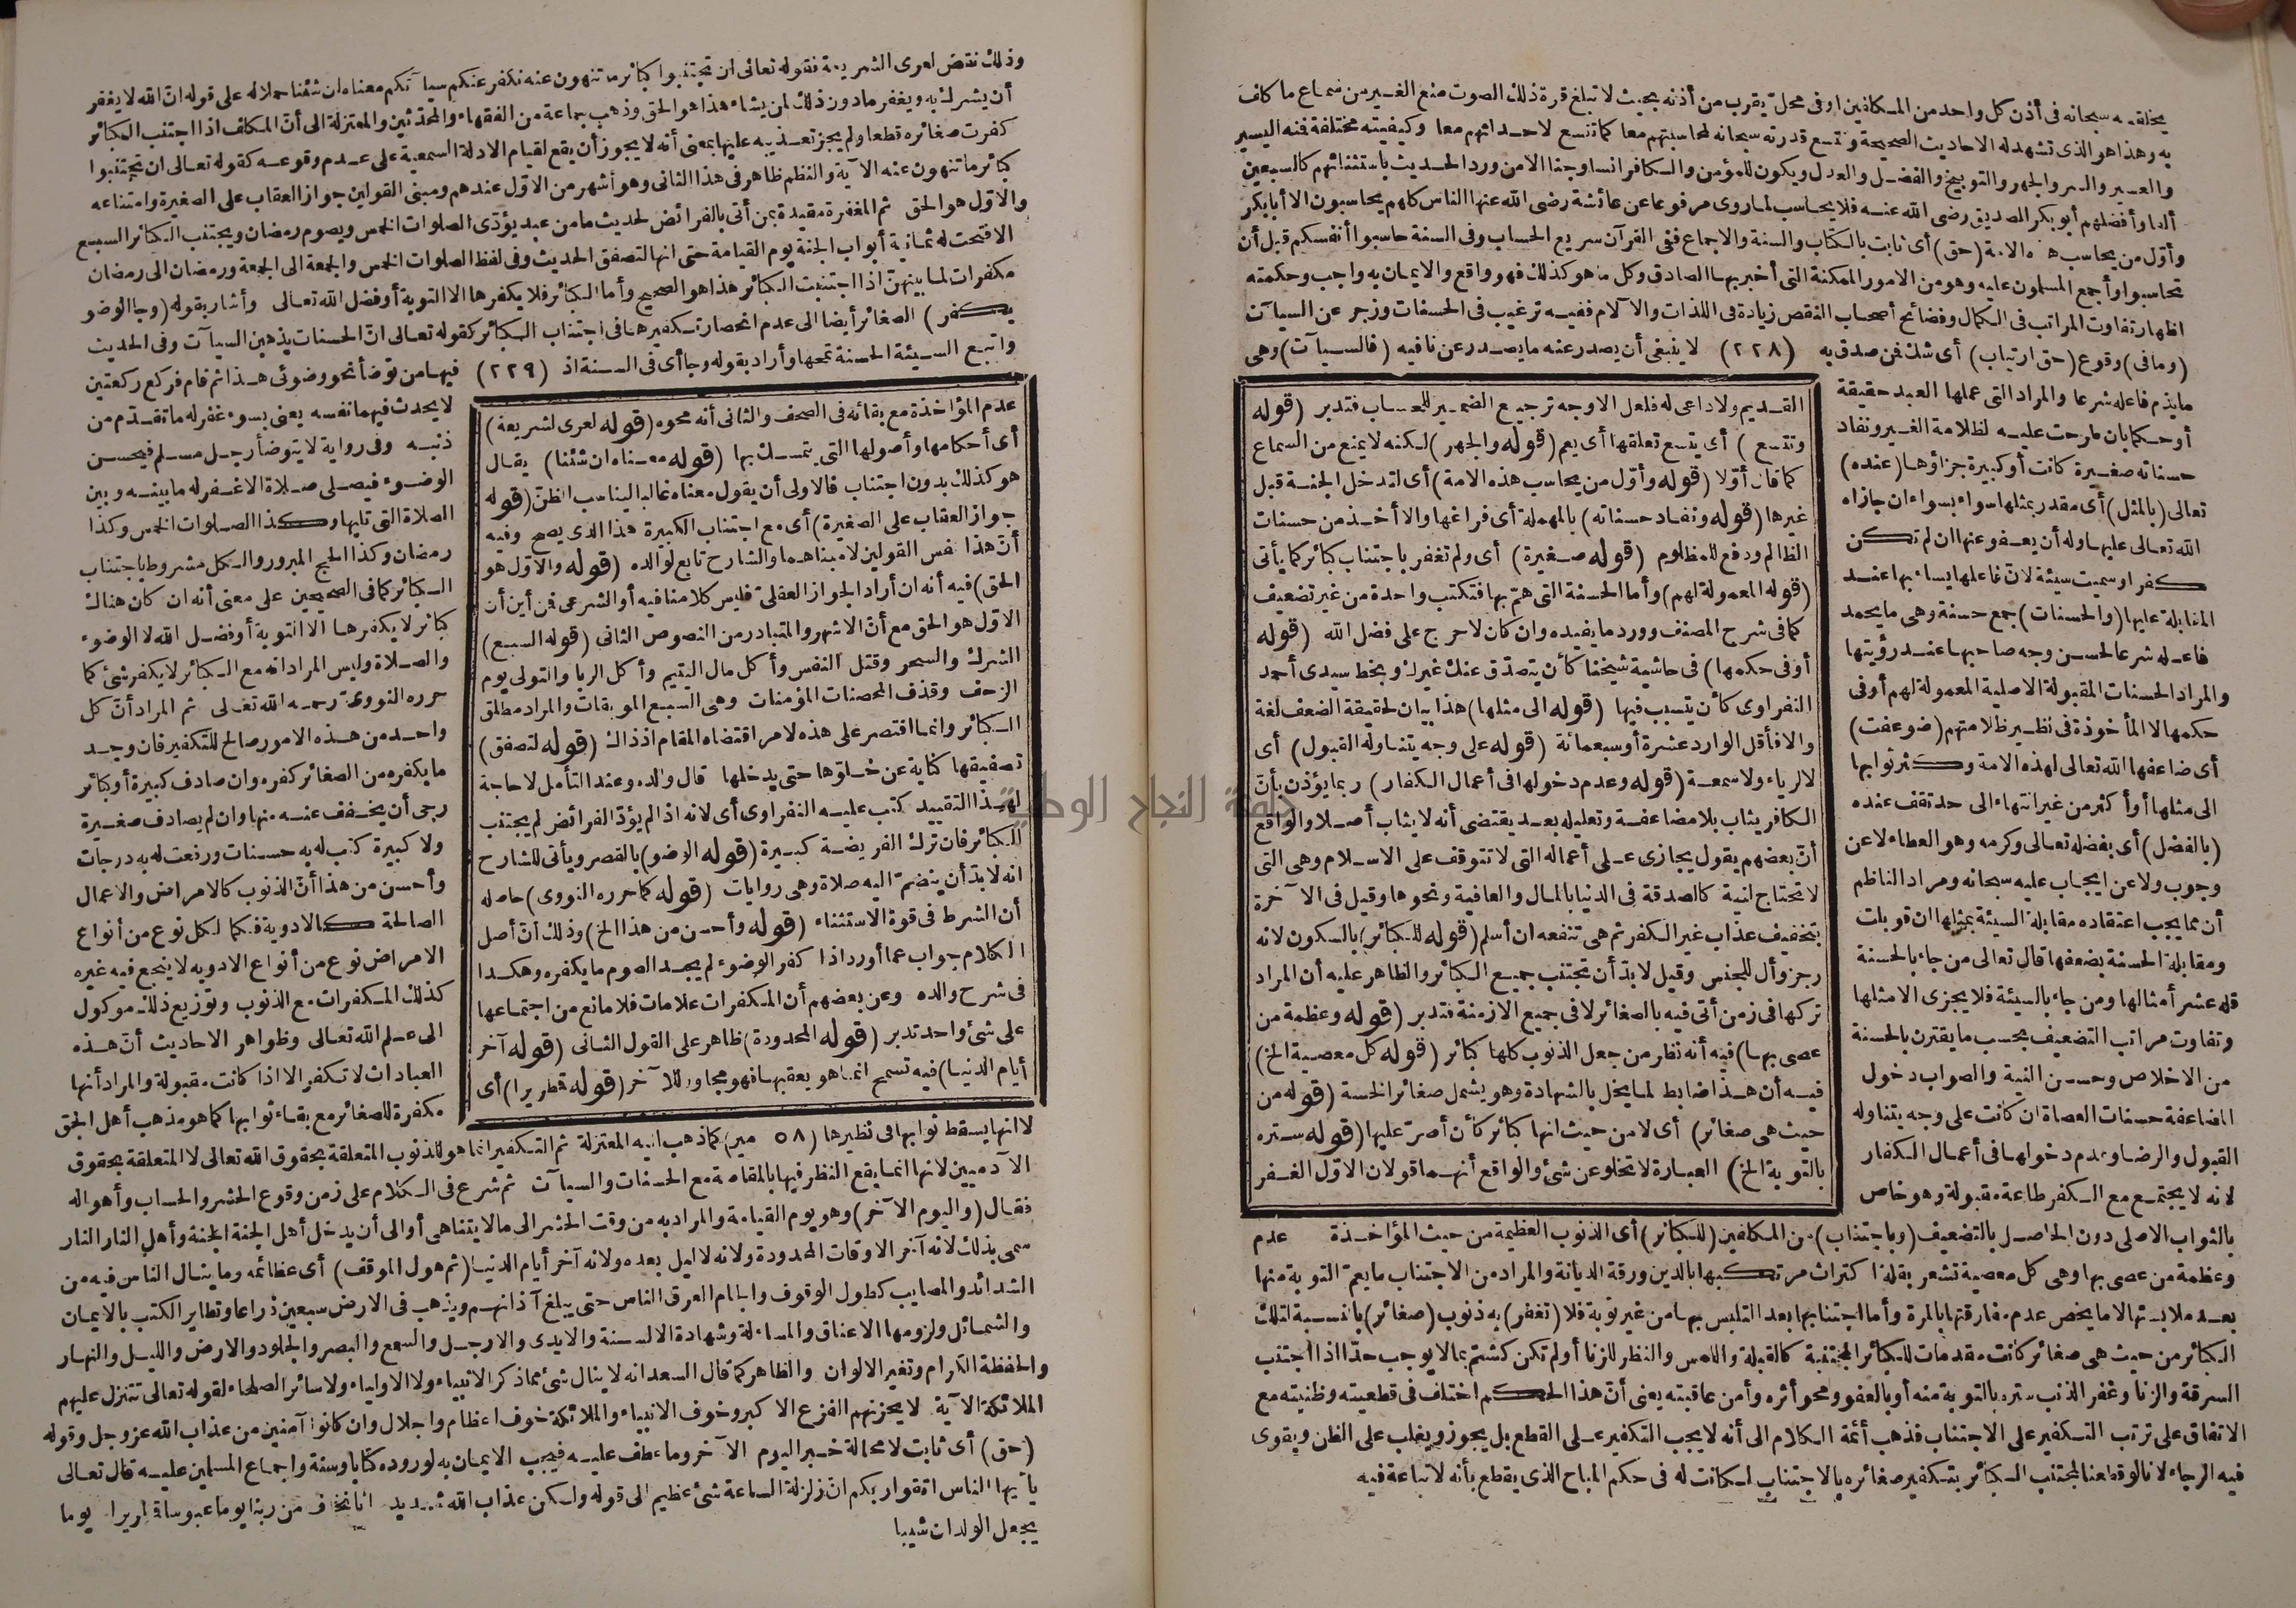 يخلقه سبحانه في أذن كل واحد من المكلفين أو في محل يقرب من أذنه بحيث لا تبلغ قوة ذلك الصوت منع الغير من سماع ما كلف
به وهذا هو الذي تشهد له الاحاديث الصحيحة وتتسع قدرته سبحانه لمحاسبتهم معا كما تتسع لاحداثهم معا وكيفيته مختلفة فمنه اليسير
والعسير والسر والجهر والتوبيخ والفضل والعدل ويكون للمؤمن والكافر انسا وجنا الا من ورد الحديث باستثنائهم كالسبعين
ألفا وأفضلهم أبو بكر الصديق رضي الله عنه فلا يحاسب لما روى مرفوعا عن عائشة رضي الله عنها الناس كلهم يحاسبون الا أبا بكر
وأول من يحاسب هذه الامة (حق) أي ثابت بالكتاب والسنة والاجماع ففي القرآن سريع الحساب وفي السنة حاسبوا أنفسكم قبل أن
تحاسبوا وأجمع المسلمون عليه وهو من الامور الممكنة التي أخبر بها الصادق وكل ما هو كذلك فهو واقع والايمان به واجب وحكمته
اظهار تفاوت المراتب في الكمال وفضائح أصحاب النقص زيادة في اللذات والآلام ففيه ترغيب في الحسنات وزجر عن السيآت
(وما في) وقوع (حق ارتياب) أي شك فمن صدق به (٢٢٨) لا ينبغي أن يصدر عنه ما يصدر عن نافيه (فالسيآت) وهي
ما يذم فاعله شرعا والمراد التي عملها العبد حقيقة
أو حكما بان طرحت عليه لظلامة الغير ونفاد
حسناته صغيرة كانت أو كبيرة جزاؤها (عنده)
تعالى (بالمثل) أي مقدر بمثلها سواء بسواء ان جازاه
الله تعالى عليها وله أن يعفو عنها ان لم تكن
كفرا وسميت سيئة لان فاعلها يساء بها عند
المقابلة عليها (والحسنات) جمع حسنة وهي ما يحمد
فاعله شرعا لحسن وجه صاحبها عند رؤيتها
والمراد الحسنات المقبولة الاصلية المعمولة لهم أو في
حكمها لا المأخوذة في نظير ظلامتهم (ضوعفت)
أي ضاعفها الله تعالى لهذه الامة وكثر ثوابها
الى مثلها أو أكثر من غير انتهاء الى حد تقف عنده
(بالفضل) أي بفضله تعالى وكرمه وهو العطاء لا عن
وجوب ولا عن ايجاب عليه سبحانه ومراد الناظم
أن مما يجب اعتقاده مقابلة السيئة بمثلها ان قوبلت
ومقابلة الحسنة بضعفها قال تعالى من جاء بالحسنة
فله عشر أمثالها ومن جاء بالسيئة فلا يجزى الا مثلها
وتفاوت مراتب التضعيف بحسب ما يقترن بالحسنة
من الاخلاص وحسن النية والصواب دخول
المضاعفة حسنات العصاة ان كانت على وجه يتناوله
القبول والرضا وعدم دخولها في أعمال الكفار
لانه لا يجتمع مع الكفر طاعة مقبولة وهو خاص
القديم ولا داعي له فلعل الاوجه ترجيع الضمير للحساب فتدبر (قوله
وتتسع) أي يتسع تعلقها أي يعم (قوله والجهر) لكنه لا يمنع من السماع
كما قال أولا (قوله وأول من يحاسب هذه الامة) أي لتدخل الجنة قبل
غيرها (قوله ونفاد حسناته) بالمهملة أي فراغها والا أخذ من حسنات
الظالم ودفع للمظلوم (قوله صغيرة) أي ولم تغفر باجتناب كبائر كما يأتي
(قوله المعمولة لهم) وأما الحسنة التي هم بها فتكتب واحدة من غير تضعيف
كما في شرح المصنف وورد ما يفيده وان كان لا حرج على فضل الله (قوله
أو في حكمها) في حاشية شيخنا كأن يتصدق عنك غيرك وبخط سيدي أحمد
النفراوي كأن يتسبب فيها (قوله الى مثلها) هذا بيان لحقيقة الضعف لغة
والا فأقل الوارد عشرة أو سبعمائة (قوله على وجه يتناوله القبول) أي
لا لرياء ولا سمعة (قوله وعدم دخولها في أعمال الكفار) ربما يؤذن بأن
الكافر يثاب بلا مضاعفة وتعليله بعد يقتضي أنه لا يثاب أصلا والواقع
أن بعضهم يقول يجازى على أعماله التي لا تتوقف على الاسلام وهي التي
لا تحتاج لنية كالصدقة في الدنيا بالمال والعافية ونحوها وقيل في الآخرة
بتخفيف عذاب غير الكفر ثم هي تنفعه ان أسلم (قوله للكبائر) بالسكون لانه
رجز وأل للجنس وقيل لا بد أن تجتنب جميع الكبائر والظاهر عليه أن المراد
تركها في زمن أتى فيه بالصغائر لا في جميع الازمنة فتدبر (قوله وعظمة من
عصى بها) فيه أنه نظار من جعل الذنوب كلها كبائر (قوله كل معصية الخ)
فيه أن هذا ضابط لما يخل بالشهادة وهو يشمل صغائر الخسة (قوله من
حيث هي صغائر) أي لا من حيث انها كبائر كأن أصر عليها (قوله ستره
بالتوبة الخ) العبارة لا تخلو عن شئ والواقع أنهما قولان الاول الغفر
بالثواب الاصلي دون الحاصل بالتضعيف (وباجتناب) من المكلفين (للكبائر) أي الذنوب العظيمة من حيث المؤاخذة عدم
وعظمة من عصى بها وهي كل معصية تشعر بقلة اكتراث مرتكبها بالدين ورقة الديانة والمراد من الاجتناب ما يعم التوبة منها
بعد ملابستها لا ما يخص عدم مفارقتها بالمرة وأما اجتنابها بعد التلبس بها من غير توبة فلا (تغفر) به ذنوب (صغائر) بالنسبة لتلك
الكبائر من حيث هي صغائر كانت مقدمات للكبائر المجتنبة كالقبلة واللمس والنظر للزنا أو لم تكن كشتم بما لا يوجب حدا اذا اجتنب
السرقة والزنا وغفر الذنب ستره بالتوبة منه أو بالعفو ومحو أثره وأمن عاقبته يعني أن هذا الحكم اختلف في قطعيته وظنيته مع
الاتفاق على ترتب التكفير على الاجتناب فذهب أئمة الكلام الى أنه لا يجب التكفير على القطع بل يجوز ويغلب على الظن ويقوى
فيه الرجاء لانا لو قطعنا لمجتنب الكبائر بتكفير صغائره بالاجتناب لكانت له في حكم المباح الذي يقطع بأنه لا تباعة فيه
وذلك نقض لعرى الشريعة فقوله تعالى ان تجتنبوا كبائر ما تنهون عنه نكفر عنكم سيآتكم معناه ان شئنا حملا له على قوله ان الله لا يغفر
أن يشرك به ويغفر ما دون ذلك لمن يشاء هذا هو الحق وذهب جماعة من الفقهاء والمحدثين والمعتزلة الى أن المكلف اذا اجتنب الكبائر
كفرت صغائره قطعا ولم يجز تعذيبه عليها بمعنى أنه لا يجوز أن يقع لقيام الادلة السمعية على عدم وقوعه كقوله تعالى ان تجتنبوا
كبائر ما تنهون عنه الآية والنظم ظاهر في هذا الثاني وهو أشهر من الاول عندهم ومبنى القولين جواز العقاب على الصغيرة وامتناعه
والاول هو الحق ثم المغفرة مقيدة بمن أتى بالفرائض لحديث ما من عبد يؤدي الصلوات الخمس ويصوم رمضان ويجتنب الكبائر السبع
الا فتحت له ثمانية أبواب الجنة يوم القيامة حتى انها لتصفق الحديث وفي لفظ الصلوات الخمس والجمعة الى الجمعة ورمضان الى رمضان
مكفرات لما بينهن اذا اجتنبت الكبائر هذا هو الصحيح وأما الكبائر فلا يكفرها الا التوبة أو فضل الله تعالى وأشار بقوله (وجا الوضو
يكفر) الصغائر أيضا الى عدم انحصار تكفيرها في اجتناب الكبائر كقوله تعالى ان الحسنات يذهبن السيآت وفي الحديث
واتبع السيئة الحسنة تمحها وأراد بقوله وجا أي في السنة اذ (٢٢٩) فيها من توضأ نحو وضوئي هذا ثم قام فركع ركعتين
عدم المؤاخذة مع بقائه في الصحف والثاني أنه محوه (قوله لعرى الشريعة)
أي أحكامها وأصولها التي يتمسك بها (قوله معناه ان شئنا) يقال
هو كذلك بدون اجتناب فالاولى أن يقول معناه غالبا ليناسب الظن (قوله
جواز العقاب على الصغيرة) أي مع اجتناب الكبيرة هذا الذي يصح وفيه
أن هذا نفس القولين لا مبناهما والشارح تابع لوالده (قوله والاول هو
الحق) فيه أنه ان أراد الجواز العقلي فليس كلامنا فيه أو الشرعي فمن أين أن
الاول هو الحق مع أن الاشهر والمتبادر من النصوص الثاني (قوله السبع)
الشرك والسحر وقتل النفس وأكل مال اليتيم وأكل الربا والتولي يوم
الزحف وقذف المحصنات المؤمنات وهي السبع الموبقات والمراد مطلق
الكبائر وانما اقتصر على هذه لامر اقتضاه المقام اذ ذاك (قوله لتصفق)
تصفيقها كناية عن خلوها حتى يدخلها قال والده وعند التأمل لا حاجة
لهذا التقييد كتب عليه النفراوي أي لانه اذا لم يؤد الفرائض لم يجتنب
الكبائر فان ترك الفريضة كبيرة (قوله الوضو) بالقصر ويأتي للشارح
انه لا بد أن ينضم اليه صلاة وهي روايات (قوله كما حرره النووي) حاصله
أن الشرط في قوة الاستثناء (قوله وأحسن من هذا الخ) وذلك أن أصل
الكلام جواب عما أورد اذا كفر الوضوء لم يجد الصوم ما يكفره وهكذا
في شرح والده وعن بعضهم أن المكفرات علامات فلا مانع من اجتماعها
على شئ واحد تدبر (قوله المحدودة) ظاهر على القول الثاني (قوله آخر
أيام الدنيا) فيه تسمح انما هو يعقبها فهو مجاور للآخر (قوله قطريرا) أي
لا يحدث فيهما نفسه يعني بسوء غفر له ما تقدم من
ذنبه وفي رواية لا يتوضأ رجل مسلم فيحسن
الوضوء فيصلي صلاة الا غفر له ما بينه وبين
الصلاة التي تليها وكذا الصلوات الخمس وكذا
رمضان وكذا الحج المبرور والكل مشروط باجتناب
الكبائر كما في الصحيحين على معنى أنه ان كان هناك
كبائر لا يكفرها الا التوبة أو فضل الله لا الوضوء
والصلاة وليس المراد انه مع الكبائر لا يكفر شئ كما
حرره النووي رحمه الله تعالى ثم المراد أن كل
واحد من هذه الامور صالح للتكفير فان وجد
ما يكفره من الصغائر كفره وان صادف كبيرة أو كبائر
رجى أن يخفف عنه منها وان لم يصادف صغيرة
ولا كبيرة كتب له به حسنات ورفعت له به درجات
وأحسن من هذا أن الذنوب كالامراض والاعمال
الصالحة كالادوية فكما لكل نوع من أنواع
الامراض نوع من أنواع الادوية لا ينجع فيه غيره
كذلك المكفرات مع الذنوب وتوزيع ذلك موكول
الى علم الله تعالى وظواهر الاحاديث أن هذه
العبادات لا تكفر الا اذا كانت مقبولة والمراد أنها
مكفرة للصغائر مع بقاء ثوابها كما هو مذهب أهل الحق
لا انها يسقط ثوابها في نظيرها (٥٨ مير) كما ذهب اليه المعتزلة ثم التكفير انما هو للذنوب المتعلقة بحقوق الله تعالى لا المتعلقة بحقوق
الآدميين لانها انما يقع النظر فيها بالمقاصة مع الحسنات والسيآت ثم شرع في الكلام على زمن وقوع الحشر والحساب وأهواله
فقال (واليوم الآخر) وهو يوم القيامة والمراد به من وقت الحشر الى ما لا يتناهى أو الى أن يدخل أهل الجنة الجنة وأهل النار النار
سمى بذلك لانه آخر الاوقات المحدودة ولانه لا ليل بعده ولانه آخر أيام الدنيا (ثم هول الموقف) أي عظائمه وما ينال الناس فيه من
الشدائد والمصايب كطول الوقوف والجام العرق الناس حتى يبلغ آذانهم ويذهب في الارض سبعين ذراعا وتطاير الكتب بالايمان
والشمائل ولزومها الاعناق والمساءلة وشهادة الالسنة والايدي والارجل والسمع والبصر والجلود والارض والليل والنهار
والحفظة الكرام وتغير الالوان والظاهر كما قال السعد انه لا ينال شئ مما ذكر الانبياء ولا الاولياء ولا سائر الصلحاء لقوله تعالى تتنزل عليهم
الملائكة الآية لا يحزنهم الفزع الاكبر وخوف الانبياء والملائكة خوف اعظام واجلال وان كانوا آمنين من عذاب الله عز وجل وقوله
(حق) أي ثابت لا محالة خبر اليوم الآخر وما عطف عليه فيجب الايمان به لوروده كتابا وسنة واجماع المسلمين عليه قال تعالى
يأيها الناس اتقوا ربكم ان زلزلة الساعة شئ عظيم الى قوله ولكن عذاب الله شديد انا نخاف من ربنا يوما عبوسا قمطريرا يوما
يجعل الولدان شيبا
حلمة النجاح الوطنية